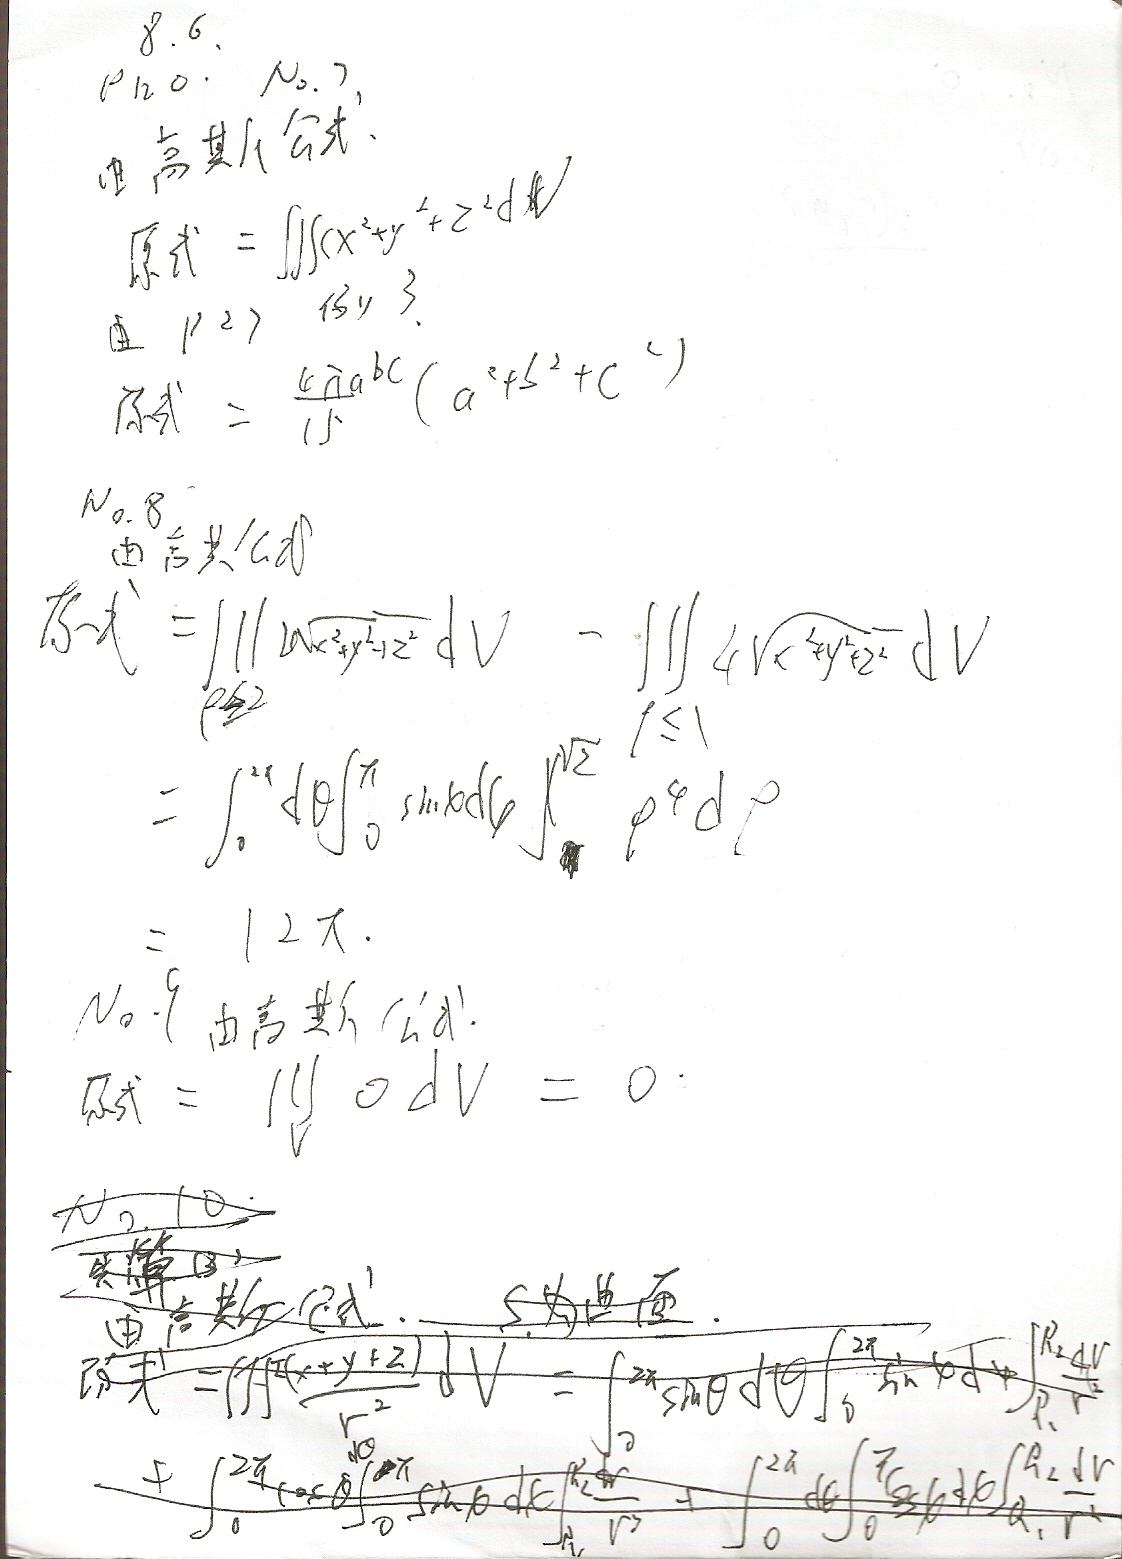 8.6.
P120. No.7.
由高其斤公式.
原式 = ∭(x²+y²+z²dV
由 P27 例 3.
原式 = 4πabc/15 (a²+b²+c²)
No.8
由高其公式
原式 = ∭ρ≤2 √x²+y²+z² dV - ∭ρ≤1 4√x²+y²+z² dV
= ∫₀^2π dθ ∫₀^π sinφdφ ∫^√2 ρ⁴dρ
= 12π.
No.9 由高斯公式.
原式 = ∭V 0 dV = 0.
No.10.
由高其公式. S为曲面.
原式 = ∭ (x+y+z)/r² dV = ∫₀^2π sinθdθ ∫₀^2π sinφdφ ∫R₁^R₂ dr/r²
+ ∫₀^2π cosθ dθ ∫₀^π sinφ dφ ∫R₁^R₂ dr/r² + ∫₀^2π dθ ∫₀^π φdφ ∫R₁^R₂ dr/r²